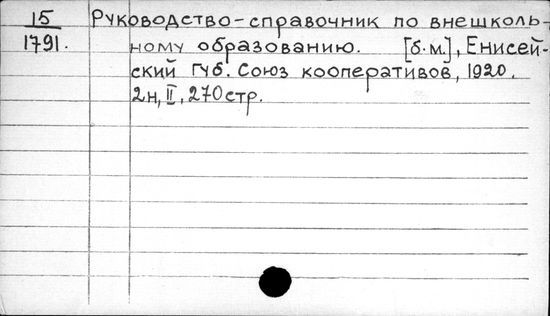 15 Руководство-справочник по внешколь-
1791. ному образованию. [б.м.], Енисей-
ский Губ. Союз кооперативов, 1920.
2н, II, 270 стр.